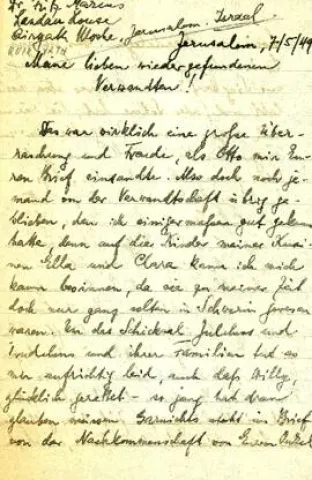 Dr. Fritz Marcus
Landau House
Qiryath Moshe, Jerusalem. Israel.
Jerusalem, 7/5/49
Meine lieben wiedergefundenen
Verwandten!
Das war wirklich eine große Über-
raschung und Freude, als Otto mir Eu-
ren Brief einsandte. Also doch noch je-
mand von der Verwandtschaft übrig ge-
blieben, den ich einigermaßen gut gekannt
hatte, denn auf die Kinder meiner Kusi-
nen Ella und Clara kann ich mich
kaum besinnen, da sie zu meiner Zeit
doch nur ganz selten in Schwerin gewesen
waren. Um das Schicksal Julchens und
Trudchens und ihrer Familien tut es
mir aufrichtig leid, auch daß Willy,
glücklich gerettet - so jung hat dran
glauben müssen. Garnichts steht im Brief
von der Nachkommenschaft von Eurem Onkel